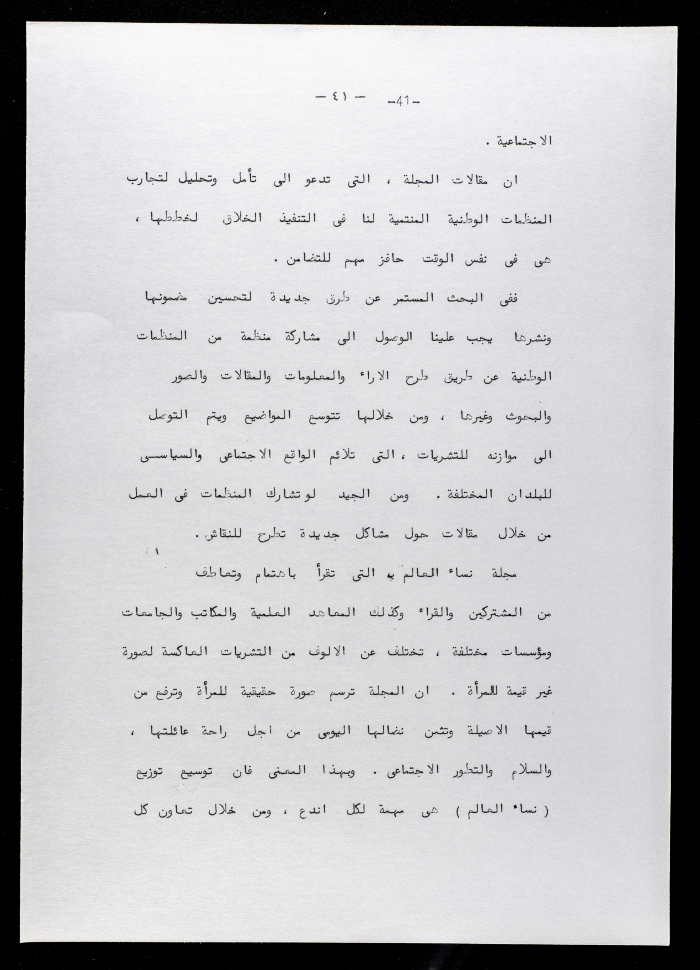 — ٤١ — -41-
الاجتماعية .
ان مقالات المجلة ، التى تدعو الى تأمل وتحليل لتجارب
المنظمات الوطنية المنتمية لنا فى التنفيذ الخلاق لخططها ،
هى فى نفس الوقت حافز مهم للتضامن .
ففى البحث المستمر عن طرق جديدة لتحسين مضمونها
ونشرها يجب علينا الوصول الى مشاركة منظمة من المنظمات
الوطنية عن طريق طرح الاراء والمعلومات والمقالات والصور
والبحوث وغيرها ، ومن خلالها تتوسع المواضيع ويتم التوصل
الى موازنه للتشريات ، التى تلائم الواقع الاجتماعى والسياسى
للبلدان المختلفة . ومن الجيد لو تشارك المنظمات فى العمل
من خلال مقالات حول مشاكل جديدة تطرح للنقاش .
مجلة نساء العالم التى تقرأ باهتمام وتعاطف
من المشتركين والقراء وكذلك المعاهد العلمية والمكاتب والجامعات
ومؤسسات مختلفة ، تختلف عن الالوف من التشريات العاكسة لصورة
غير قيمة للمرأة . ان المجلة ترسم صورة حقيقية للمرأة وترفع من
قيمها الاصيلة وتثمن نضالها اليومى من اجل راحة عائلتها ،
والسلام والتطور الاجتماعى . وبهذا المعنى فان توسيع توزيع
( نساء العالم ) هى مهمة لكل اندع ، ومن خلال تعاون كل